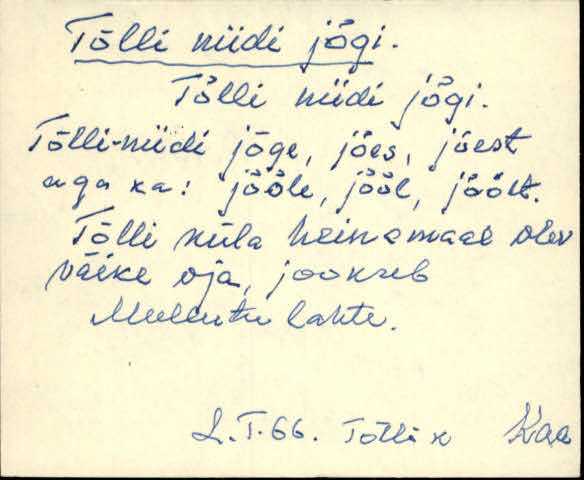 Tõlli niidi jõgi.
Tõlli niidi jõgi.
Tõlli-niidi jõge, jões, jõest
aga ka: jõõle, jõõl, jõõlt.
Tõlli küla heinamaal olev
väike oja, jookseb
Mullutu lahte.
L.T.66. Tõlli k Kaa